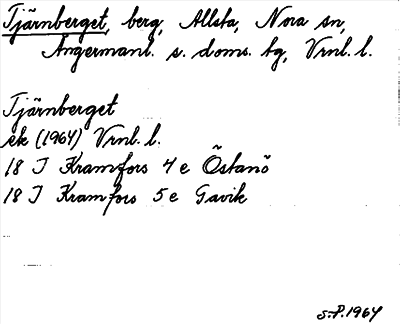 Tjärnberget, berg, Allsta, Nora sn,
Ångermanl. s. doms. hg, Vrnl. l.
Tjärnberget
ek (1964) Vrnl. l.
18 I Kramfors 4 e Östanö
18 I Kramfors 5 e Gavik
S.P. 1964